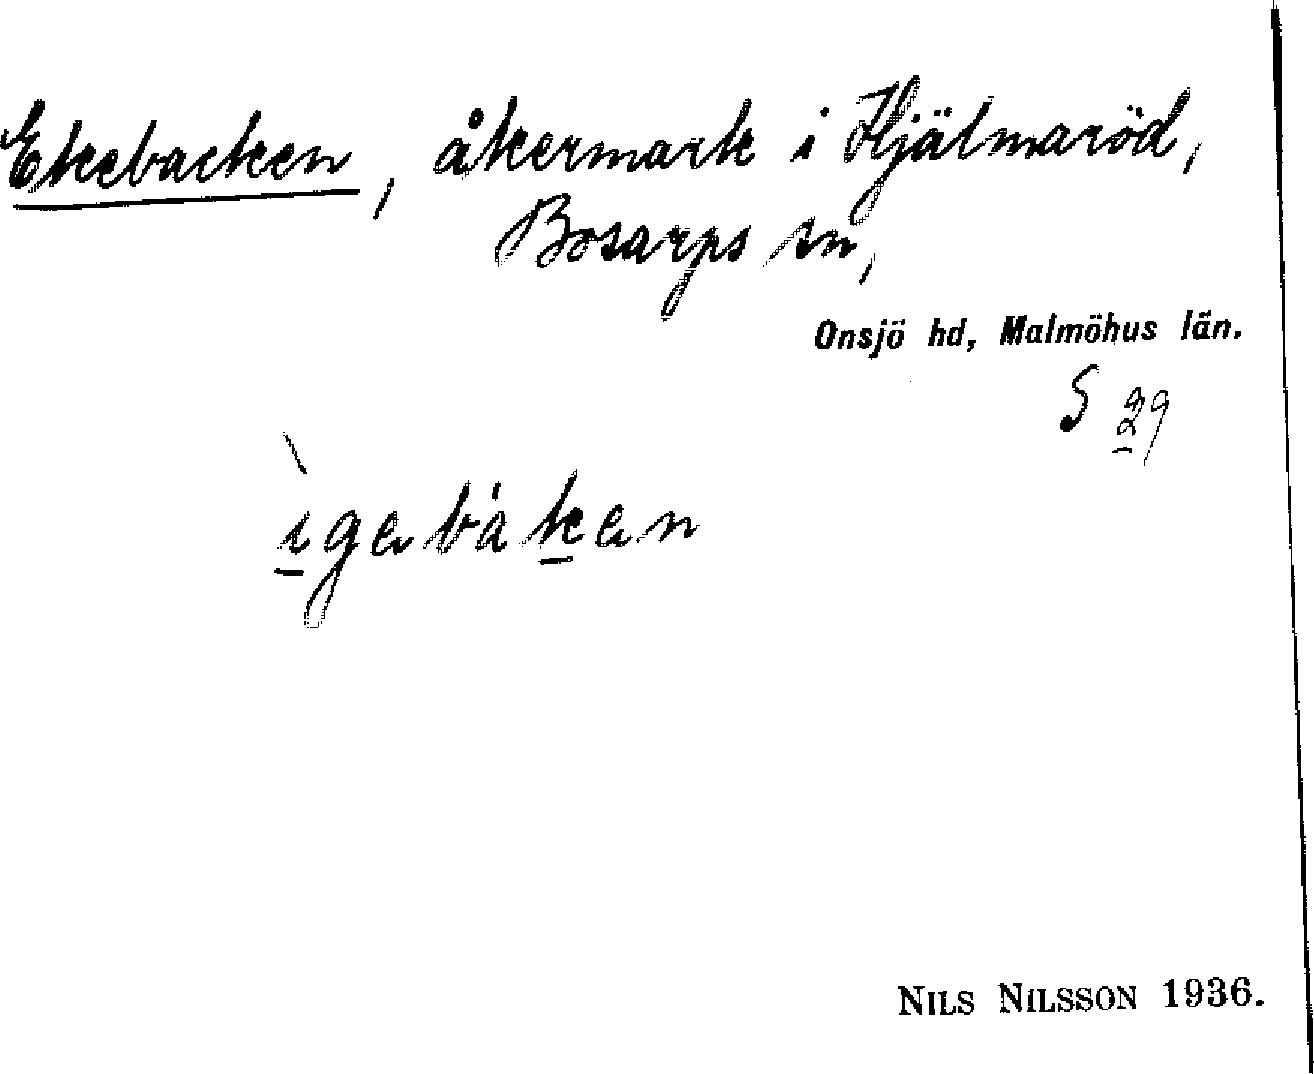 Ekebacken, åkermark i Hjälmaröd,
Bosarps sn,
Onsjö hd, Malmöhus län.
S 29
ìgebàken
NILS NILSSON 1936.